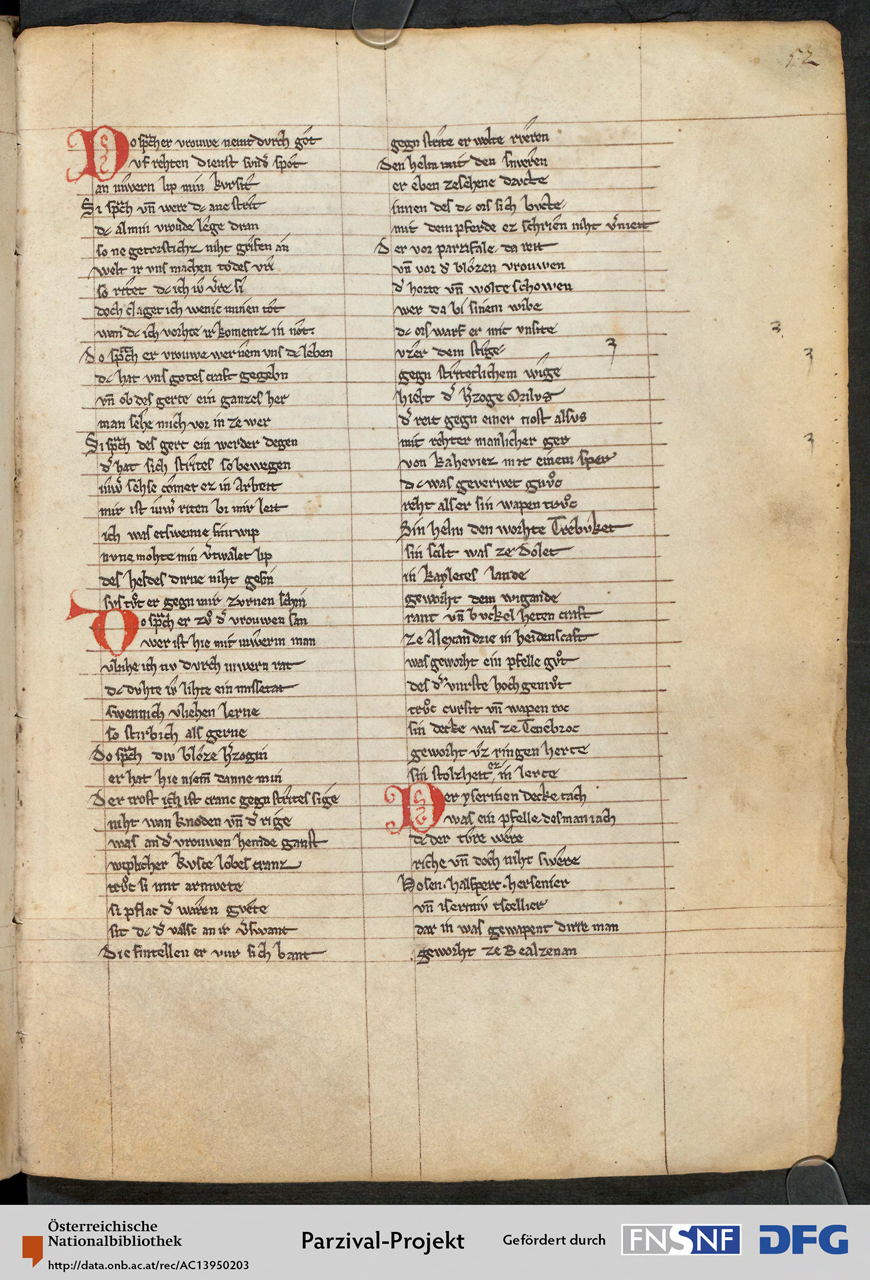 52
Do sp͛ch er vrouwe nemt durch got
vf rehten dienst sunď spot
an iuwern lip min kursit
Si sp͛ch vñ were dc ane strit
dc al min vroude lege dran
so ne getorstichz niht grifen an
welt ir vns machen todes vri
so ritet dc ich iv v͛re si
doch claget ich wenic minen tot
wan dc ich vorhte ir komentz in not.
Do sp͛ch er vrouwe wer nem vns dc leben
dc hat vns gotes craft gegebn
vñ ob des gerte ein ganzes her
man sehe mich vor in ze wer
Si sp͛ch des gert ein werder degen
d͛ hat sich strites so bewegen
iuw͛ sehse comet ez in arbeit
mir ist iuw͛ riten bi mir leit
ich was etswenne sin wip
nvne mohte min v͛twalet lip
des heldes dirne niht gesin
svs tv̊t er gegn mir zvrnen schin
Do sp͛ch er zv̊ d͛ vrouwen san
wer ist hie mit iuwerm man
vlihe ich nv durch iuwern rat
dc dvhte iv lihte ein missetat
swennich vliehen lerne
so stirbich als gerne
Do sp͛ch div bloze h͛zogin
er hat hie niem̄ danne min
Der trost ich ist cranc gegn strites sige
niht wan knoden vñ d͛ rige
was and͛ vrouwen hemde ganst
wiplicher kvsce lobes cranz
trv̊c si mit armvete
si pflac d͛ waren gvete
sit dc d͛ valsc an ir v͛swant
Die fintellen er vur sich bant
gegn strite er wolte rveren
Den helm mit den snveren
er eben ze sehene drvcte
innen des dc ors sich bvcte
mit dem pferde ez schrien niht v͛meit
Der vor parzifale da reit
vñ vor d͛ blozen vrouwen
d͛ horte vñ wolte schowen
wer da bi sinem wibe
dc ors warf er mit vnsite
vzer dem stige
gegn striteclichem wige
hielt d͛ h͛zoge Orilus
d͛ reit gegn einer tiost alsvs
mit rehter manlicher ger
von kaheviez mit einem sper
dc was geverwet gnv̊c
reht als er sin wapen trv̊c
Sin helm den worhte Trebvket
sin scilt was ze Dolet
in kayletes lande
geworht dem wigande
rant vñ bvckel heten craft
ze Alexandrie in heidenscaft
was geworht ein pfelle gv̊t
des d͛ vurste hoch gemv̊t
trv̊c cursit vñ wapen roc
sin decke was ze Tenebroc
geworht vz ringen herte
sin stolzheit ez in lerte
Der yserinen decke tach
was ein pfelle des man iach
dc der tivre were
riche vñ doch niht swere
Hosen. halsperc. hersenier
vñ iseriniv tscellier
dar in was gewapent dirre man
geworht ze Bealzenan
3
3
3
3
Österreichische
Nationalbibliothek
http://data.onb.ac.at/rec/AC13950203
Parzival-Projekt
Gefördert durch
FNSNF
DFG